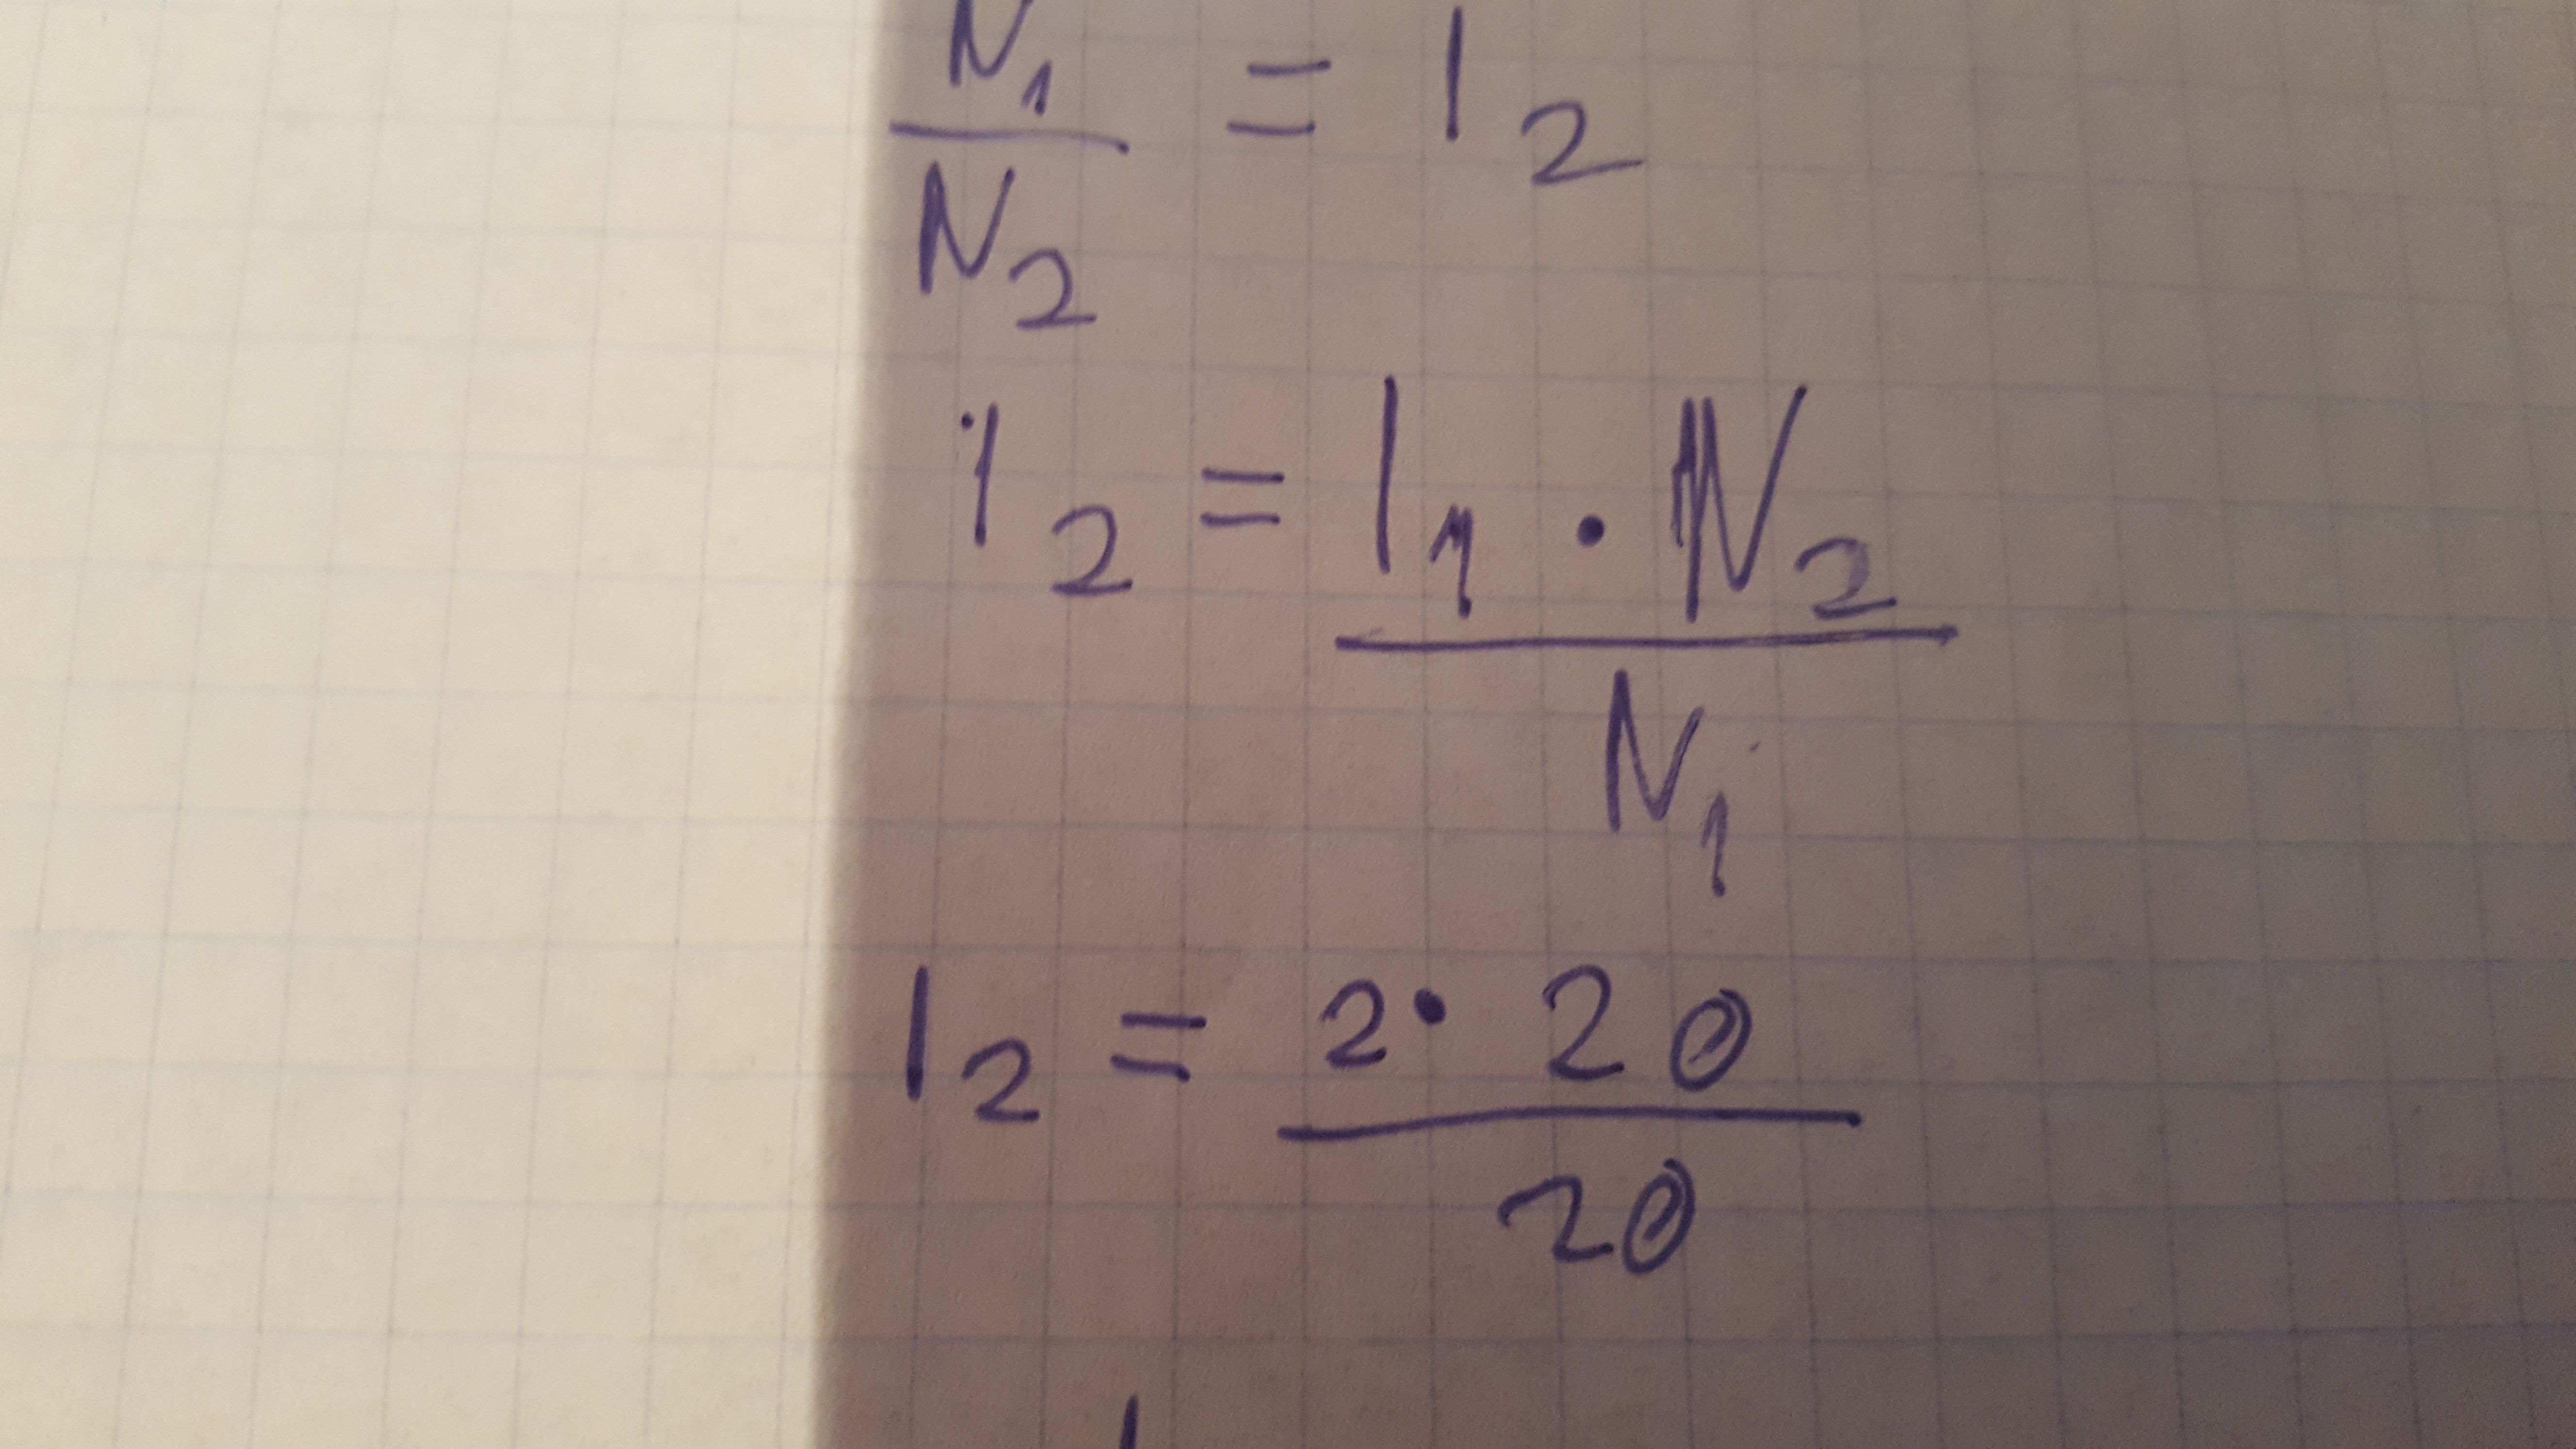 N₁/N₂ = I₂
i₂ = I₁ · N₂ / N₁
I₂ = 2 · 20 / 20